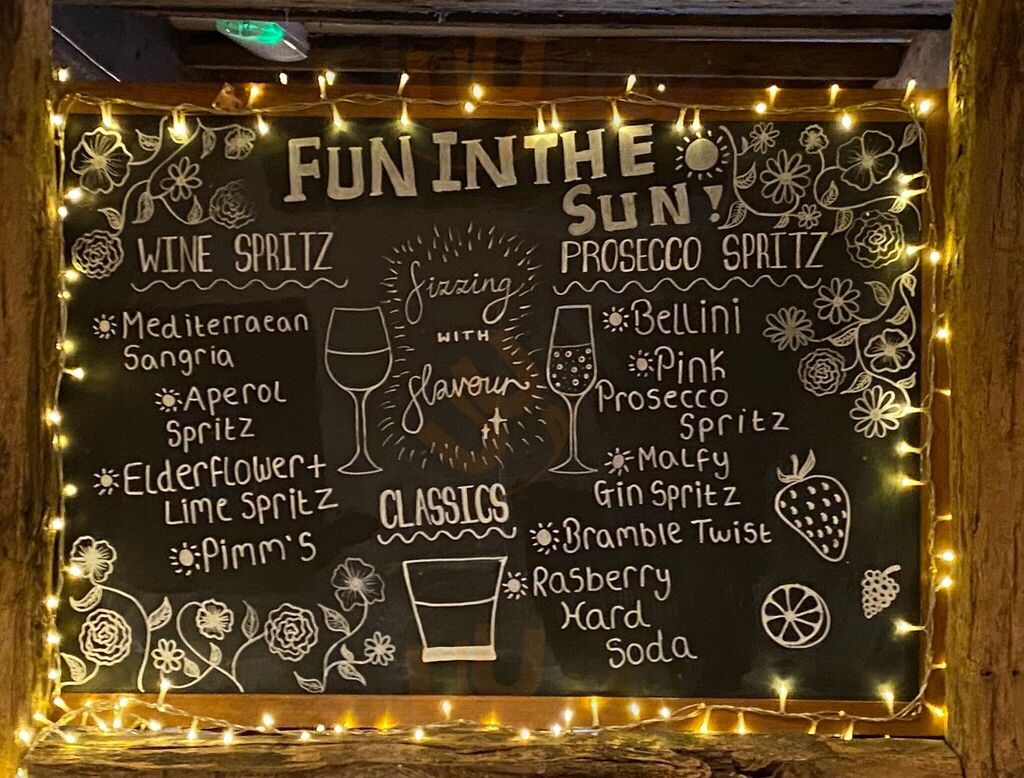 FUN IN THE
SUN!
WINE SPRITZ
Mediterraean
Sangria
Aperol
Spritz
Elderflower +
Lime Spritz
Pimm's
fizzing
WITH
flavour
CLASSICS
PROSECCO SPRITZ
Bellini
Pink
Prosecco
Spritz
Malfy
Gin Spritz
Bramble Twist
Rasberry
Hard
Soda